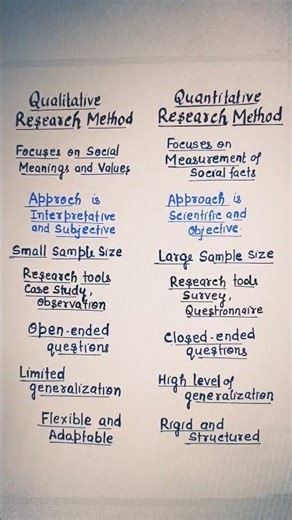 Qualitative
Research Method
Focuses on Social
Meanings and Values
Approch is
Interpretative
and Subjective
Small Sample Size
Research tools
Case Study,
Observation
Open-ended
questions
Limited
generalization
Flexible and
Adaptable
Quantitative
Research Method
Focuses on
Measurement of
Social facts
Approach is
Scientific and
Objective.
Large Sample Size
Research tools
Survey,
Questionnaire
Closed-ended
questions
High level of
generalization
Rigid and
Structured